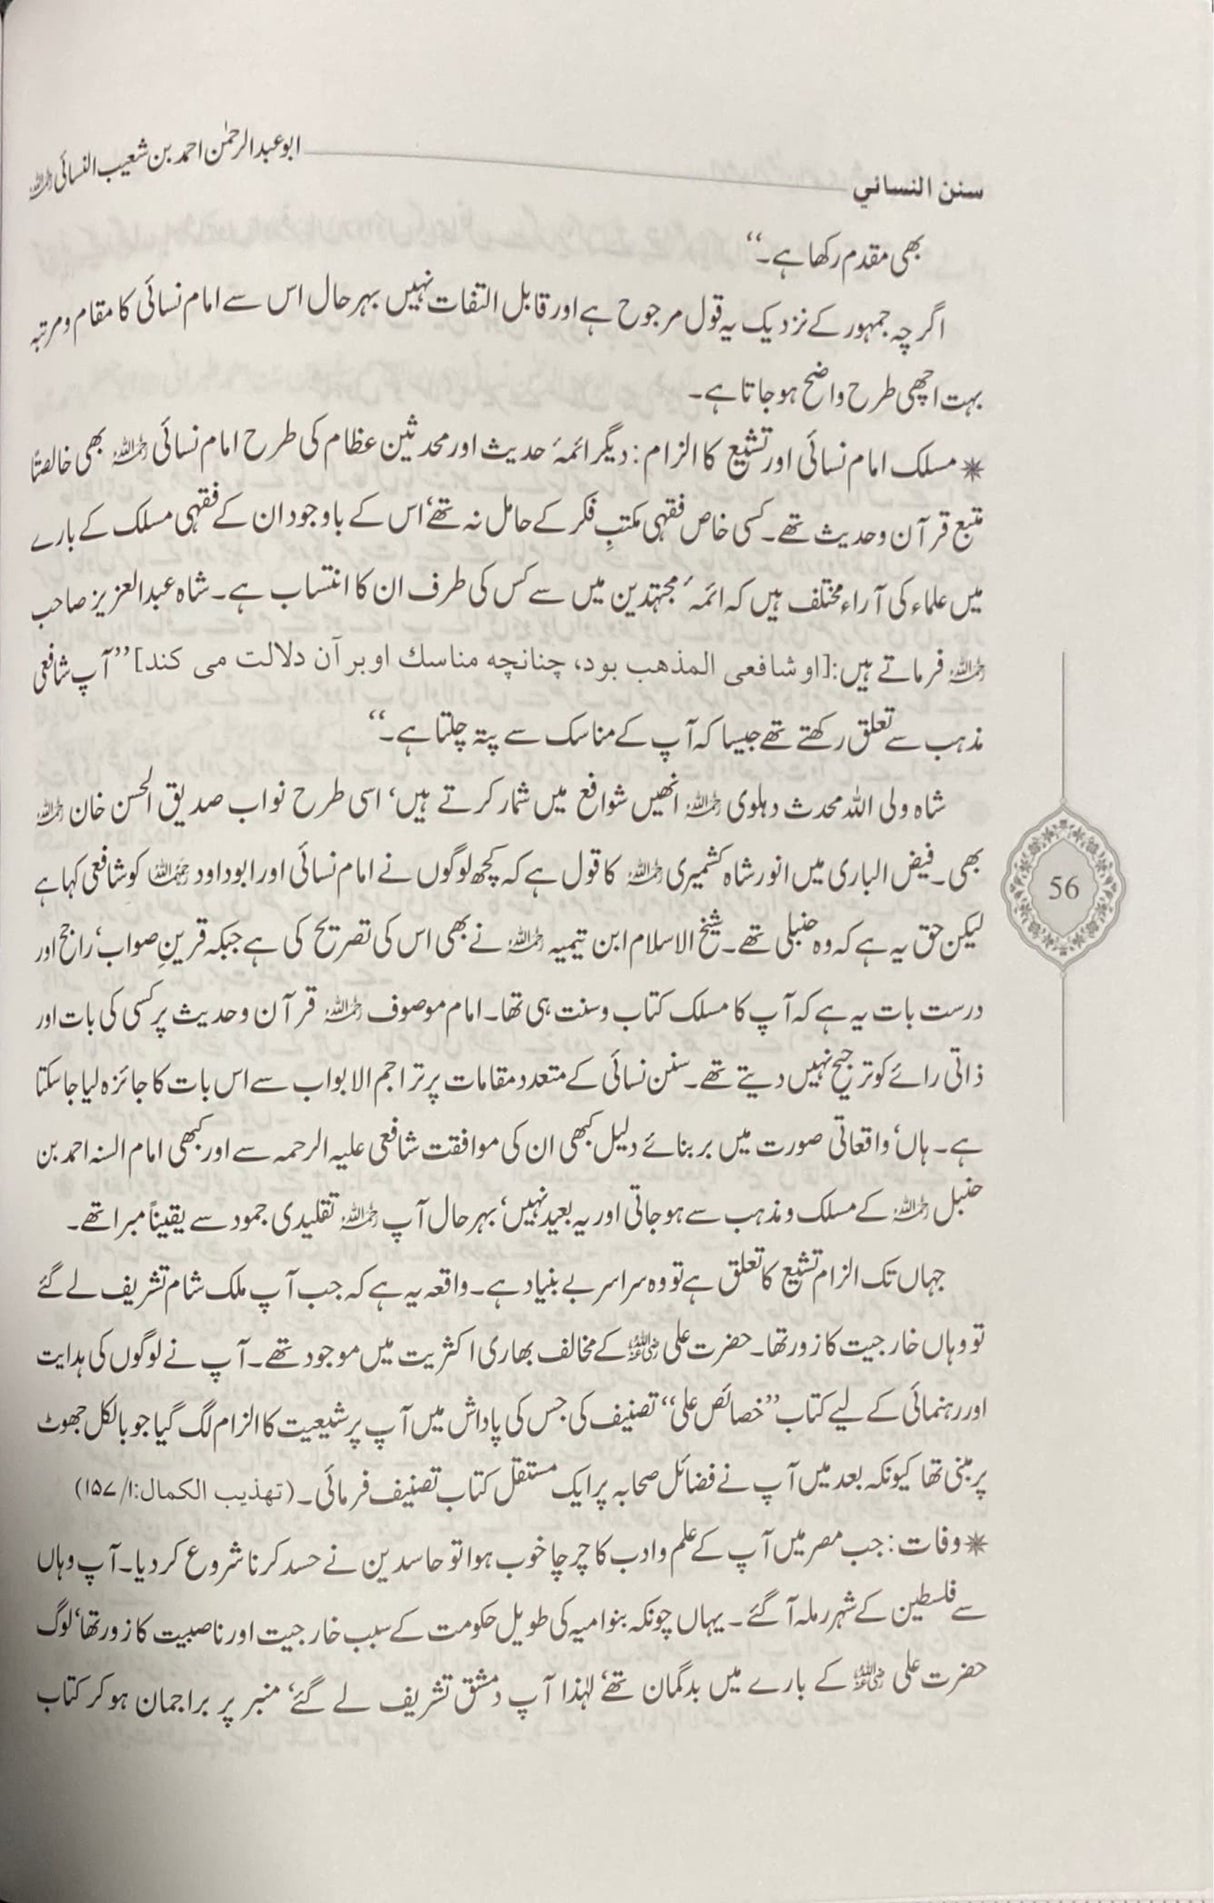 سنن النسائي ابو عبدالرحمٰن احمد بن شعیب النسائی ؒ
بھی مقدم رکھا ہے۔‘‘
اگرچہ جمہور کے نزدیک یہ قول مرجوح ہے اور قابل التفات نہیں بہرحال اس سے امام نسائی کا مقام ومرتبہ
بہت اچھی طرح واضح ہو جاتا ہے۔
✴ مسلک امام نسائی اور تشیع کا الزام: دیگر ائمۂ حدیث اور محدثین عظام کی طرح امام نسائی ؒ بھی خالصتاً
متبع قرآن وحدیث تھے۔ کسی خاص فقہی مکتبِ فکر کے حامل نہ تھے‘ اس کے باوجود ان کے فقہی مسلک کے بارے
میں علماء کی آراء مختلف ہیں کہ ائمۂ مجتہدین میں سے کس کی طرف ان کا انتساب ہے۔ شاہ عبدالعزیز صاحب
ؒ فرماتے ہیں: [او شافعی المذهب بود، چنانچه مناسك او بر آن دلالت می کند] ’’آپ شافعی
مذہب سے تعلق رکھتے تھے جیسا کہ آپ کے مناسک سے پتہ چلتا ہے۔‘‘
شاہ ولی اللہ محدث دہلوی ؒ انھیں شوافع میں شمار کرتے ہیں‘ اسی طرح نواب صدیق الحسن خان ؒ
بھی۔ فیض الباری میں انور شاہ کشمیری ؒ کا قول ہے کہ کچھ لوگوں نے امام نسائی اور ابوداود ؒ کو شافعی کہا ہے
لیکن حق یہ ہے کہ وہ حنبلی تھے۔ شیخ الاسلام ابن تیمیہ ؒ نے بھی اس کی تصریح کی ہے جبکہ قرینِ صواب‘ راجح اور
درست بات یہ ہے کہ آپ کا مسلک کتاب وسنت ہی تھا۔ امام موصوف ؒ قرآن وحدیث پر کسی کی بات اور
ذاتی رائے کو ترجیح نہیں دیتے تھے۔ سنن نسائی کے متعدد مقامات پر تراجم الابواب سے اس بات کا جائزہ لیا جا سکتا
ہے۔ ہاں‘ واقعاتی صورت میں بر بنائے دلیل کبھی ان کی موافقت شافعی علیہ الرحمہ سے اور کبھی امام السنہ احمد بن
حنبل ؒ کے مسلک ومذہب سے ہو جاتی اور یہ بعید نہیں‘ بہرحال آپ ؒ تقلیدی جمود سے یقیناً مبرا تھے۔
جہاں تک الزام تشیع کا تعلق ہے تو وہ سراسر بے بنیاد ہے۔ واقعہ یہ ہے کہ جب آپ ملک شام تشریف لے گئے
تو وہاں خارجیت کا زور تھا۔ حضرت علی ؓ کے مخالف بھاری اکثریت میں موجود تھے۔ آپ نے لوگوں کی ہدایت
اور رہنمائی کے لیے کتاب ’’خصائص علی‘‘ تصنیف کی جس کی پاداش میں آپ پر شیعیت کا الزام لگ گیا جو بالکل جھوٹ
پر مبنی تھا کیونکہ بعد میں آپ نے فضائل صحابہ پر ایک مستقل کتاب تصنیف فرمائی۔ (تهذيب الكمال:۱/۱۵۷)
✴ وفات: جب مصر میں آپ کے علم وادب کا چرچا خوب ہوا تو حاسدین نے حسد کرنا شروع کر دیا۔ آپ وہاں
سے فلسطین کے شہر رملہ آ گئے۔ یہاں چونکہ بنوامیہ کی طویل حکومت کے سبب خارجیت اور ناصبیت کا زور تھا‘ لوگ
حضرت علی ؓ کے بارے میں بدگمان تھے‘ لہٰذا آپ دمشق تشریف لے گئے‘ منبر پر براجمان ہو کر کتاب
56